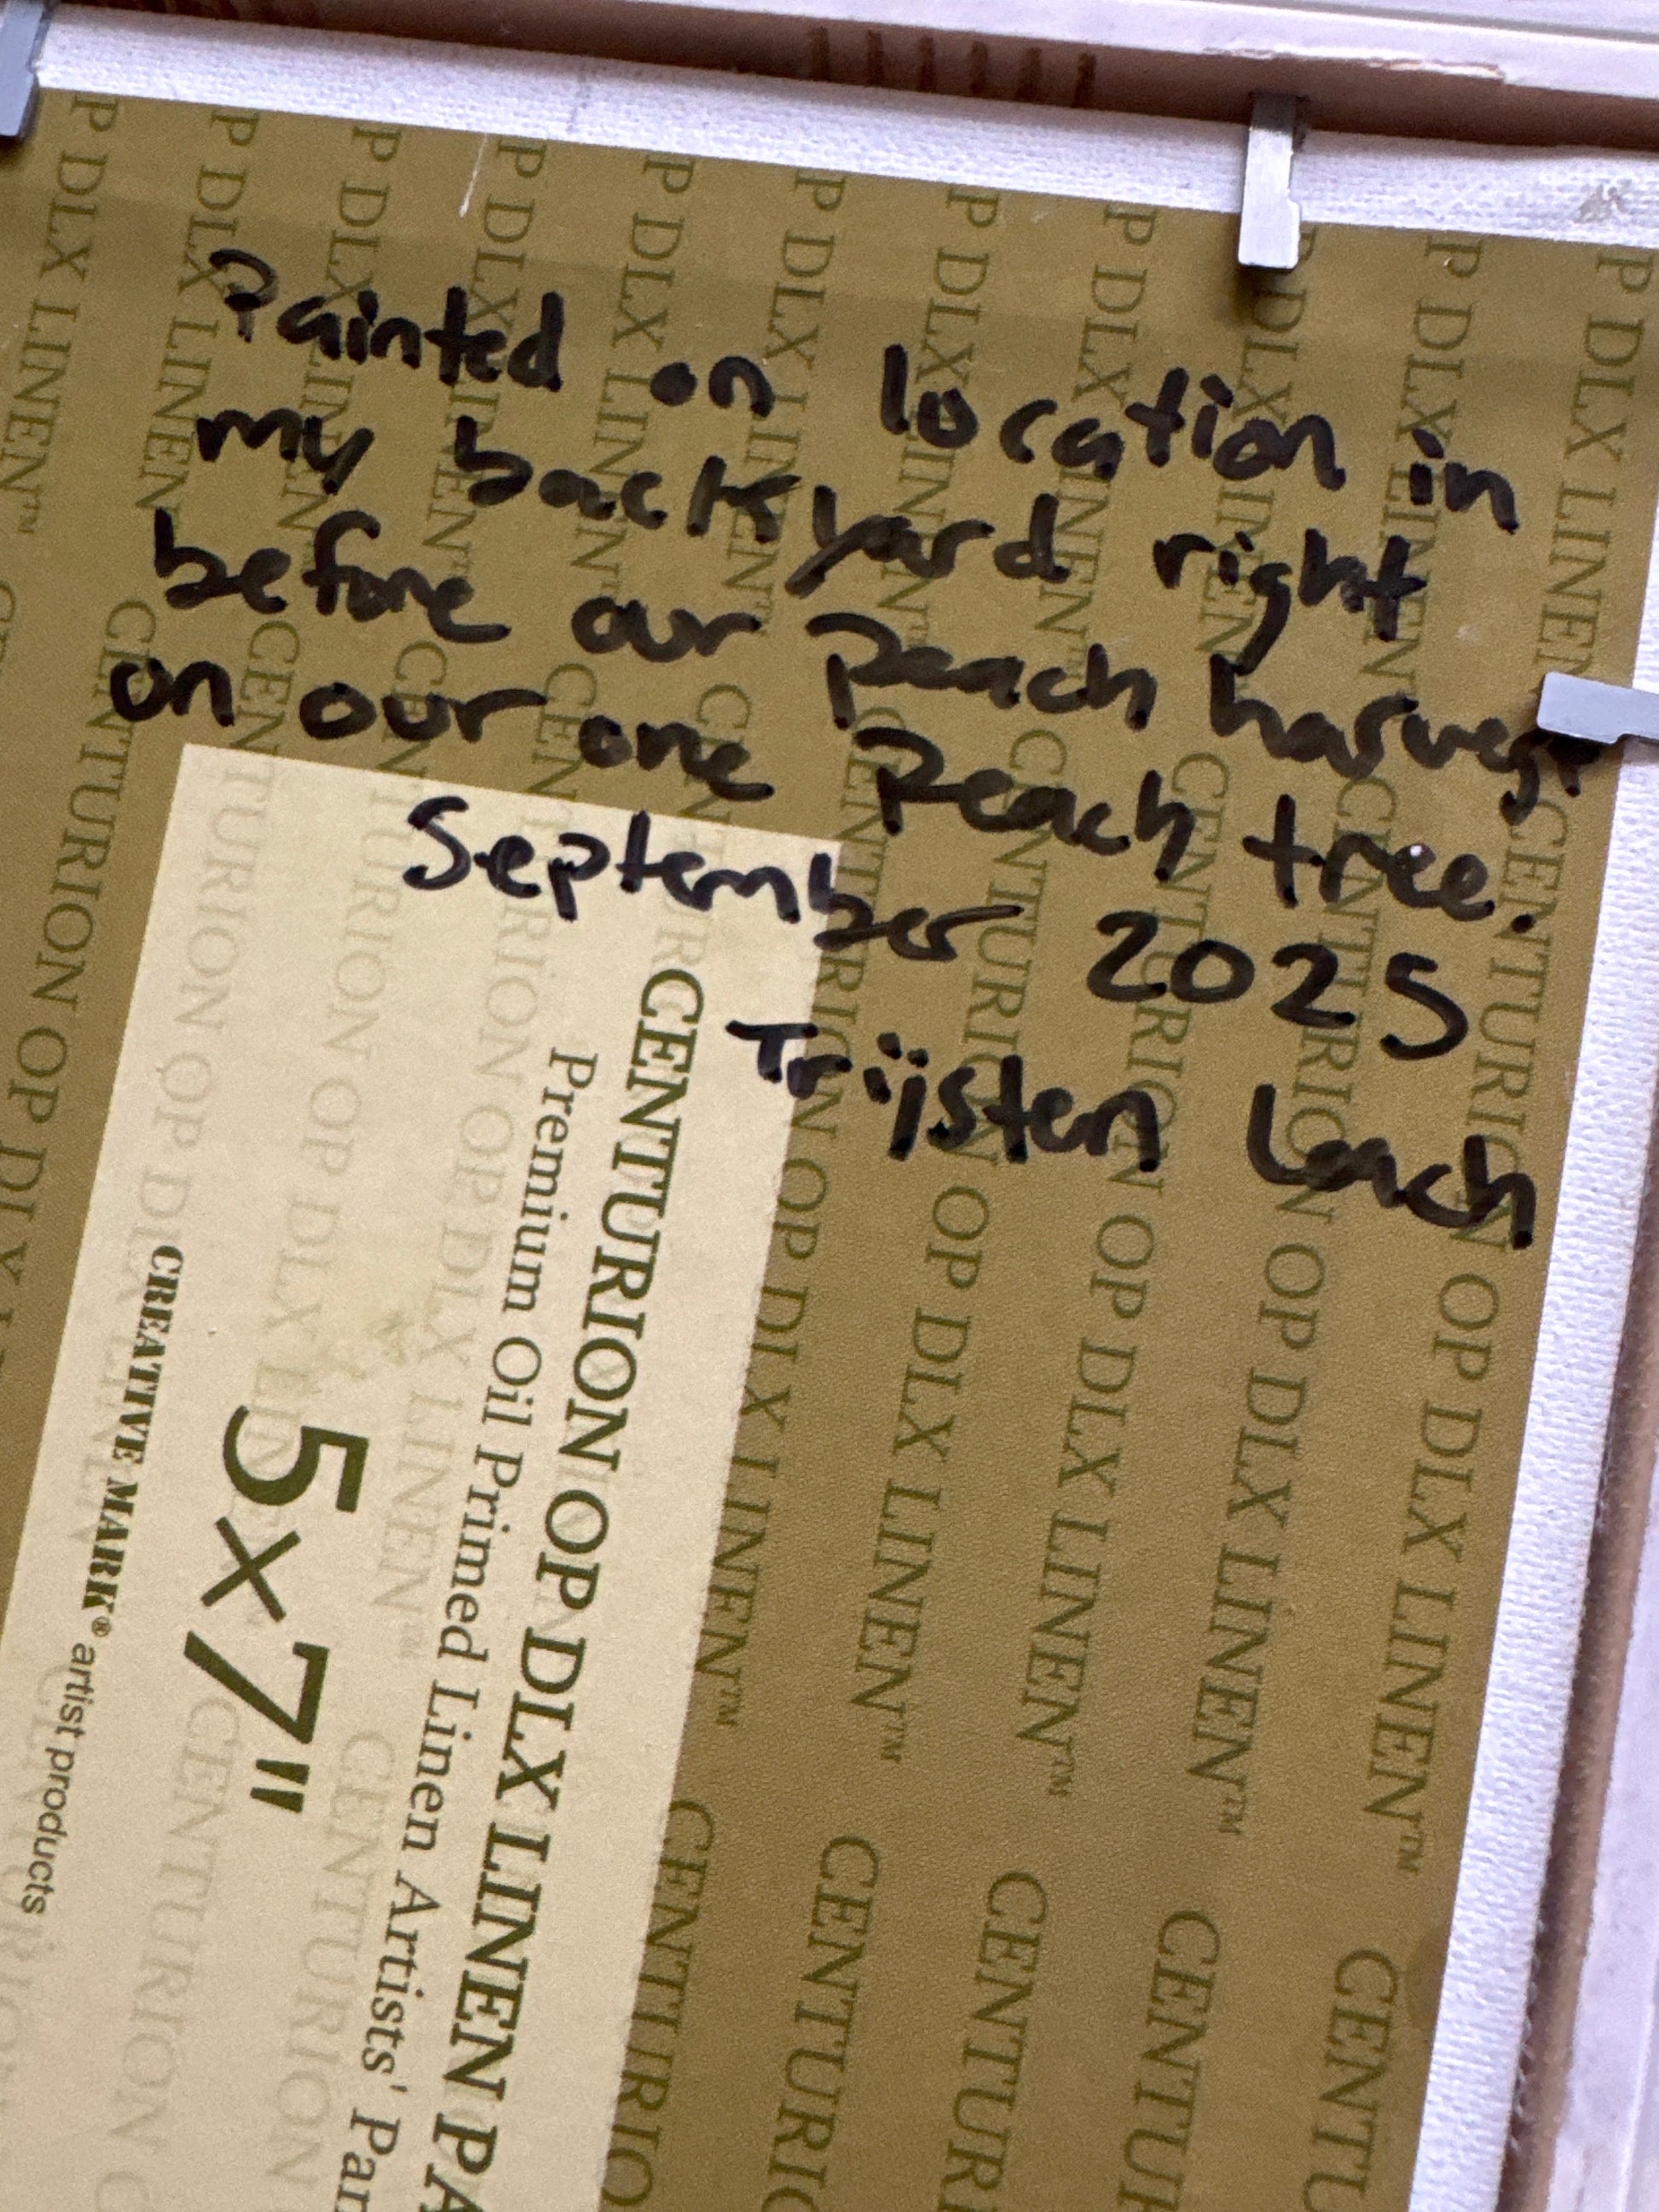 Painted on location in
my backyard right
before our peach harvest
on our one peach tree.
September 2025
Trijsten Leach
CENTURION OP DLX LINEN PA
Premium Oil Primed Linen Artists' Pan
5×7"
CREATIVE MARK® artist products
CENTURION OP DLX LINEN™